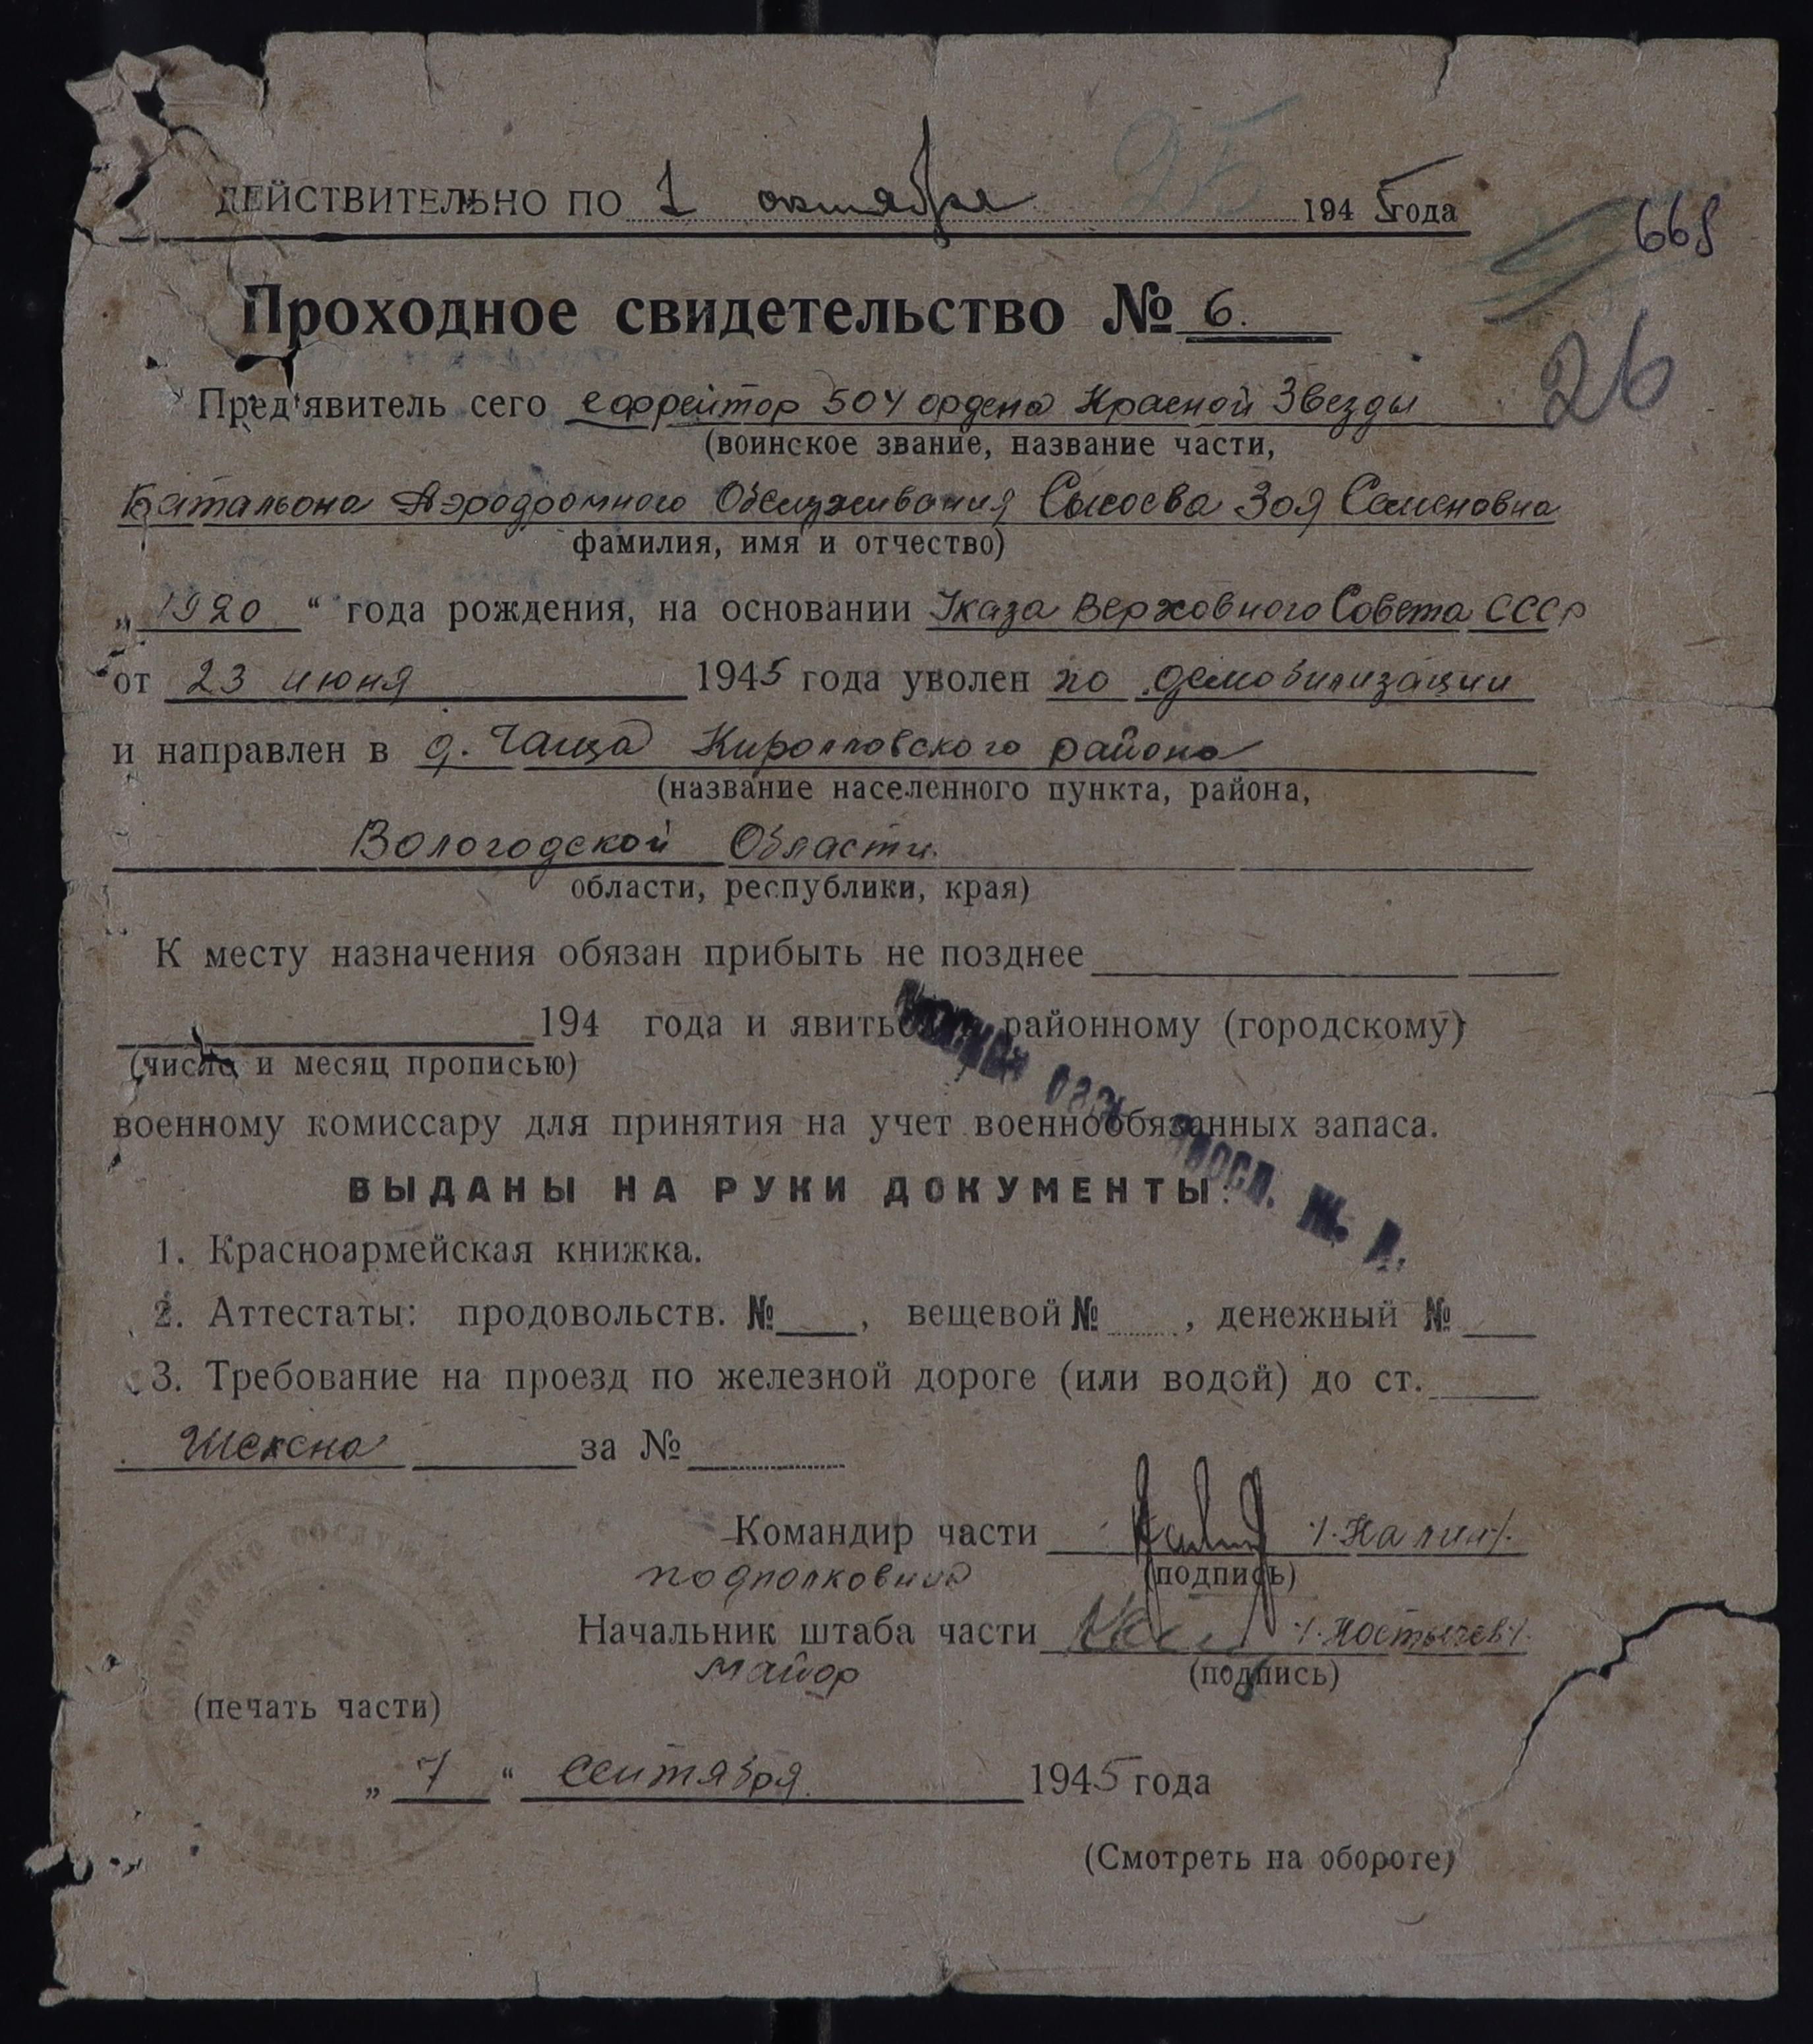 25
ДЕЙСТВИТЕЛЬНО ПО 1 октября 1945 года
668
Проходное свидетельство № 6.
26
Пред'явитель сего ефрейтор 504 ордена Красной Звезды
(воинское звание, название части,
Батальона Аэродромного Обслуживания Сысоева Зоя Семеновна
фамилия, имя и отчество)
„ 1920 “ года рождения, на основании Указа Верховного Совета СССР
от 23 июня 1945 года уволен по демобилизации
и направлен в д. Чаща Кирилловского района
(название населенного пункта, района,
Вологодской Области.
области, республики, края)
К месту назначения обязан прибыть не позднее
194 года и явиться районному (городскому)
(число и месяц прописью)
военному комиссару для принятия на учет военнообязанных запаса.
ВЫДАНЫ НА РУКИ ДОКУМЕНТЫ:
1. Красноармейская книжка.
2. Аттестаты: продовольств. № , вещевой № , денежный №
3. Требование на проезд по железной дороге (или водой) до ст.
Шексна за №
Командир части /Калин/.
подполковник (подпись)
Начальник штаба части /Костычев/.
майор (подпись)
(печать части)
„ 7 “ сентября 1945 года
(Смотреть на обороте)